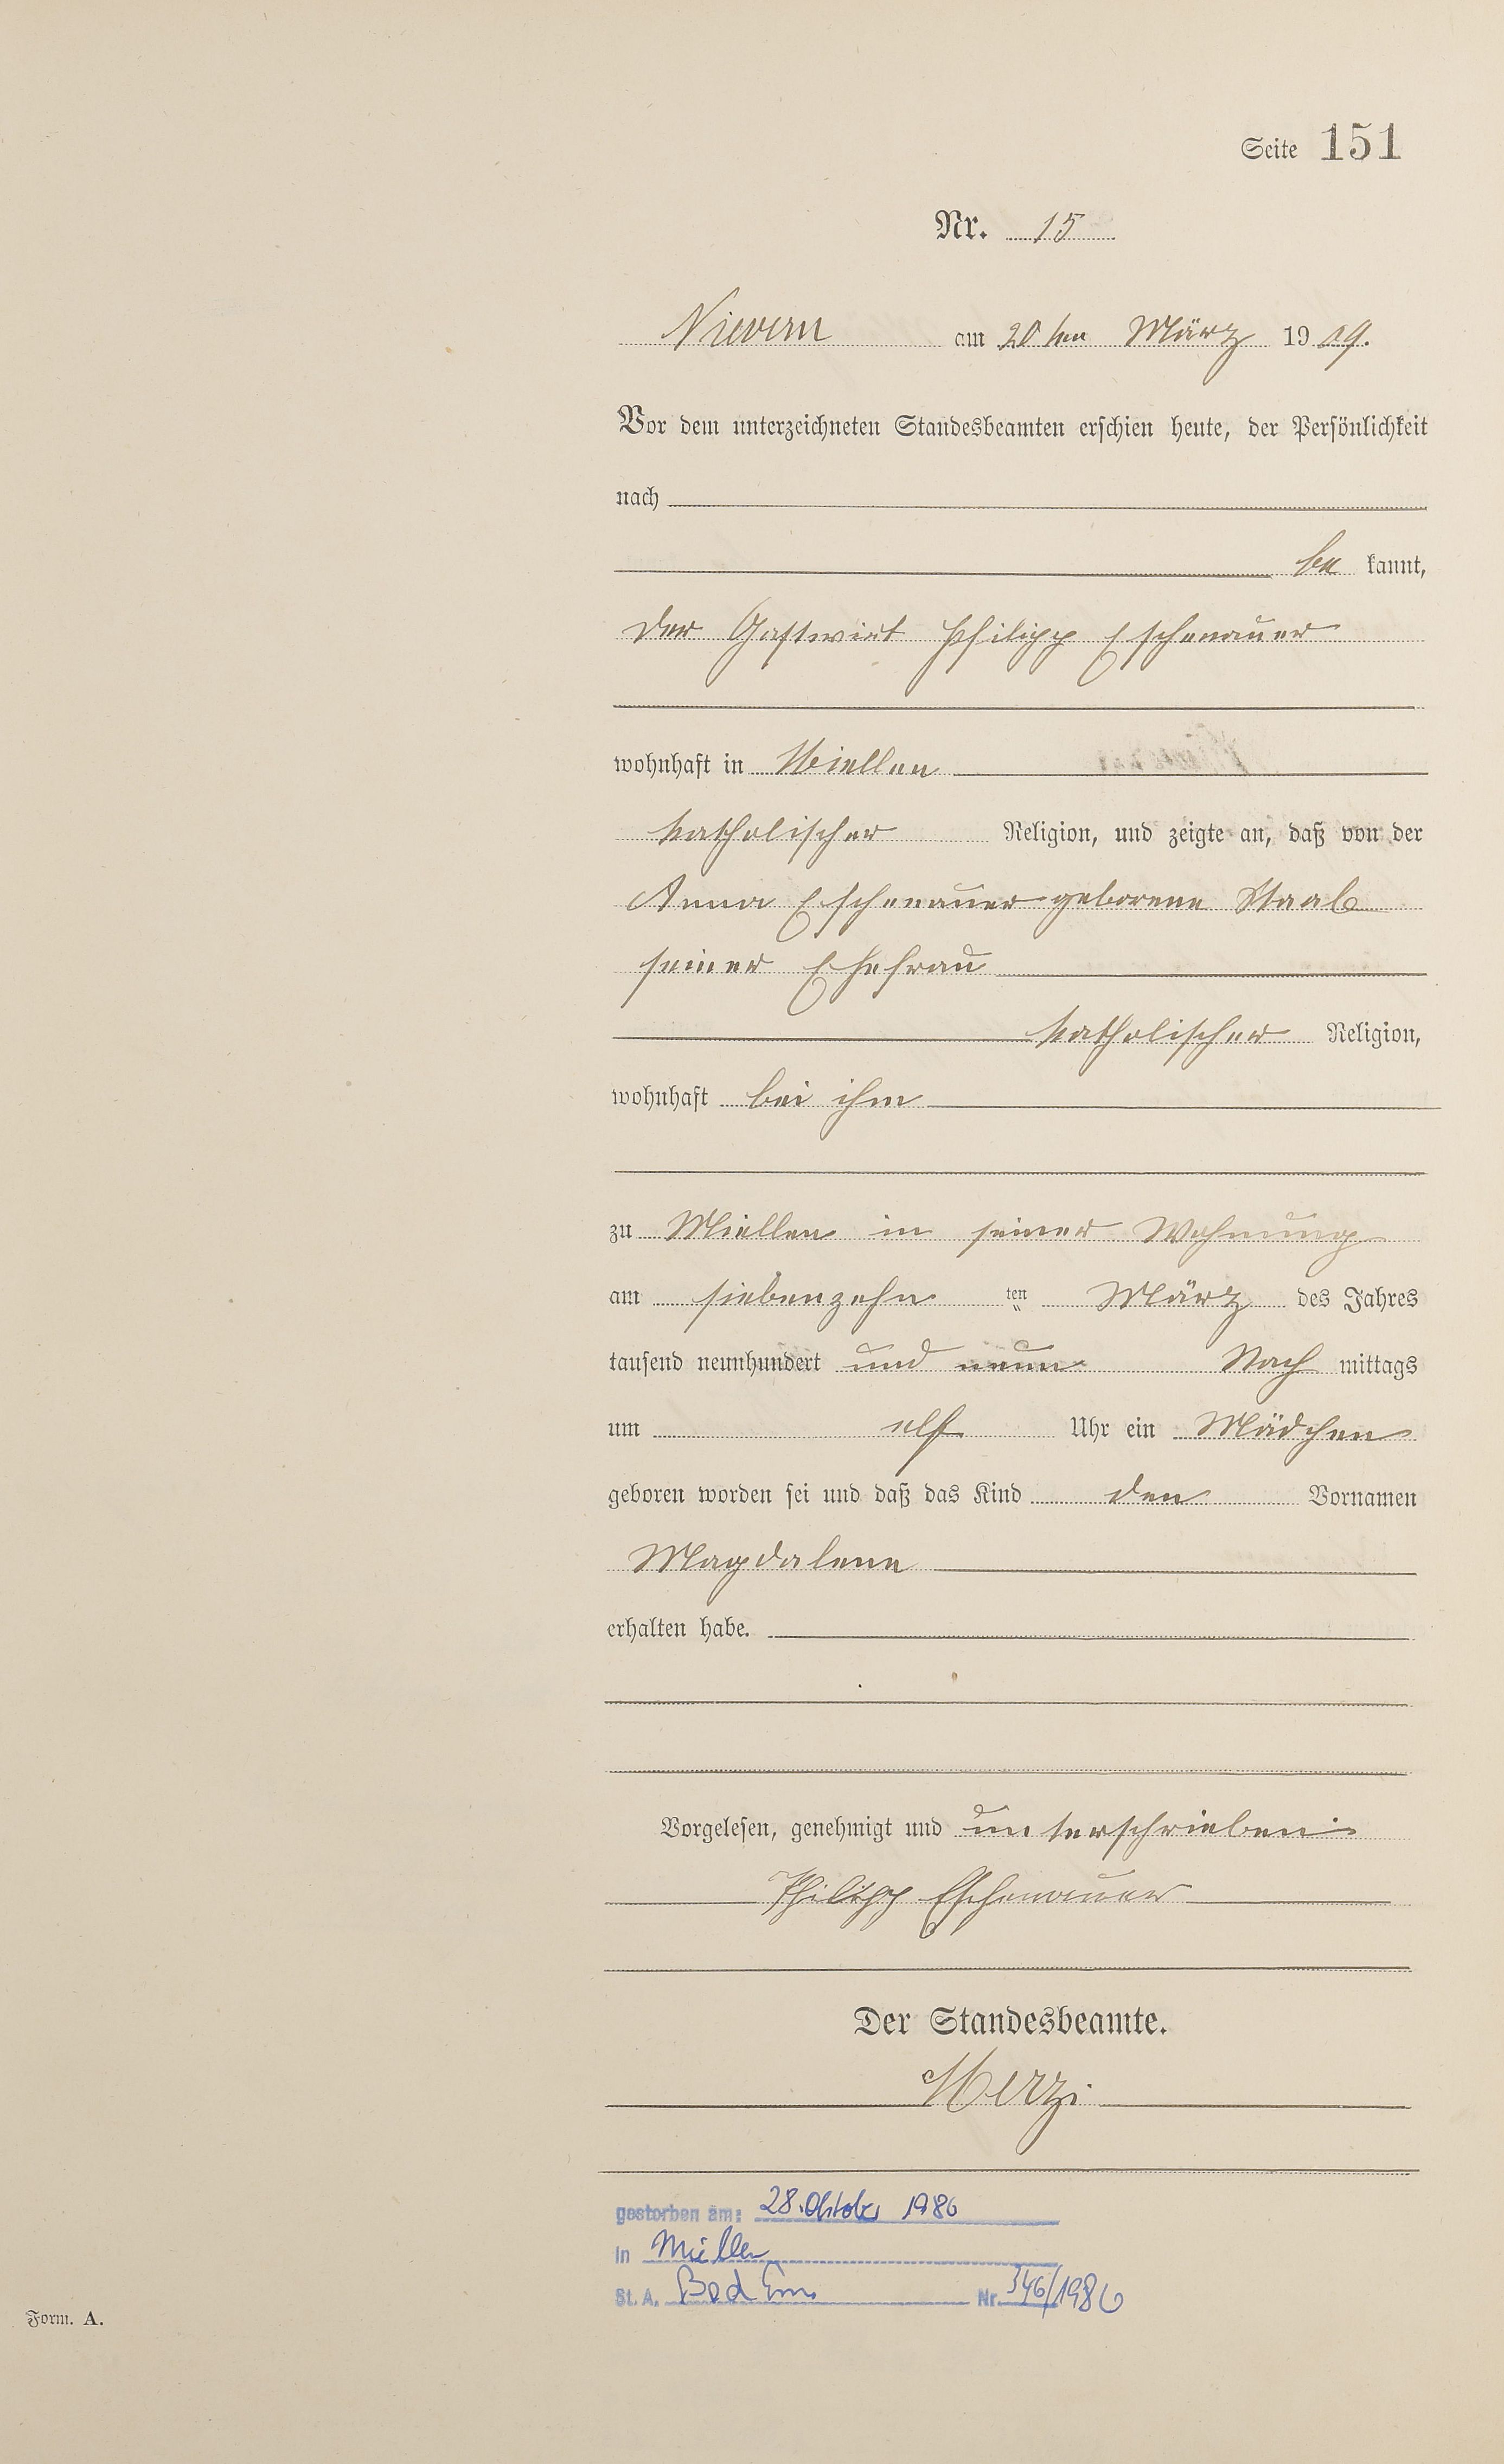 Seite 151
Nr. 15
Nievern am 20ten März 1909.
Vor dem unterzeichneten Standesbeamten erschien heute, der Persönlichkeit
nach
be kannt,
der Gastwirt Philipp Eschenauer
wohnhaft in Miellen
katholischer Religion, und zeigte an, daß von der
Anna Eschenauer geborene Staab
seiner Ehefrau
katholischer Religion,
wohnhaft bei ihm
zu Miellen in seiner Wohnung
am siebenzehn ten März des Jahres
tausend neunhundert und neun Nach mittags
um elf Uhr ein Mädchen
geboren worden sei und daß das Kind den Vornamen
Magdalena
erhalten habe.
Vorgelesen, genehmigt und unterschrieben
Philipp Eschenauer
Der Standesbeamte.
gestorben am: 28. Oktober 1986
in Miellen
St. A. Bad Ems Nr. 346/1986
Form. A.